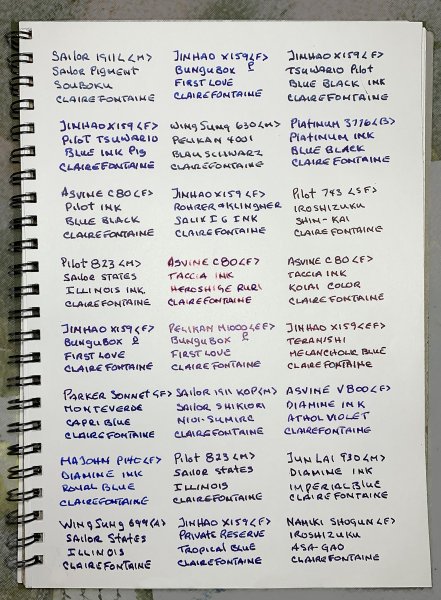 SAILOR 1911L <M>
SAILOR PIGMENT
SOUBOKU
CLAIREFONTAINE
JINHAO X159 <F>
BUNGUBOX
FIRST LOVE
CLAIREFONTAINE
JINHAO X159 <F>
TSUWARIO PILOT
BLUE BLACK INK
CLAIREFONTAINE
JINHAO X159 <F>
PILOT TSUWARIO
BLUE INK PIG
CLAIREFONTAINE
WING SUNG 630 <M>
PELIKAN 4001
BLAU SCHWARZ
CLAIREFONTAINE
PLATINUM 3776 <B>
PLATINUM INK
BLUE BLACK
CLAIREFONTAINE
ASVINE C80 <F>
PILOT INK
BLUE BLACK
CLAIREFONTAINE
JINHAO X159 <F>
ROHRER & KLINGNER
SALIX IG INK
CLAIREFONTAINE
PILOT 743 <SF>
IROSHIZUKU
SHIN-KAI
CLAIREFONTAINE
PILOT 823 <M>
SAILOR STATES
ILLINOIS INK
CLAIREFONTAINE
ASVINE C80 <F>
TACCIA INK
HEROSHIGE RURI
CLAIREFONTAINE
ASVINE C80 <F>
TACCIA INK
KOIAI COLOR
CLAIREFONTAINE
JINHAO X159 <F>
BUNGUBOX
FIRST LOVE
CLAIREFONTAINE
PELIKAN M1000 <EF>
BUNGUBOX
FIRST LOVE
CLAIREFONTAINE
JINHAO X159 <EF>
TERANISHI
MELANCHOLIC BLUE
CLAIREFONTAINE
PARKER SONNET <F>
MONTEVERDE
CAPRI BLUE
CLAIREFONTAINE
SAILOR 1911 KOP <M>
SAILOR SHIKIORI
NIOI-SUMIRE
CLAIREFONTAINE
ASVINE V800 <F>
DIAMINE INK
ATHOL VIOLET
CLAIREFONTAINE
MAJOHN P140 <F>
DIAMINE INK
ROYAL BLUE
CLAIREFONTAINE
PILOT 823 <M>
SAILOR STATES
ILLINOIS
CLAIREFONTAINE
JUN LAI 930 <M>
DIAMINE INK
IMPERIAL BLUE
CLAIREFONTAINE
WING SUNG 699 <M>
SAILOR STATES
ILLINOIS
CLAIREFONTAINE
JINHAO X159 <F>
PRIVATE RESERVE
TROPICAL BLUE
CLAIREFONTAINE
NAMIKI SHOGUN <F>
IROSHIZUKU
ASA-GAO
CLAIREFONTAINE